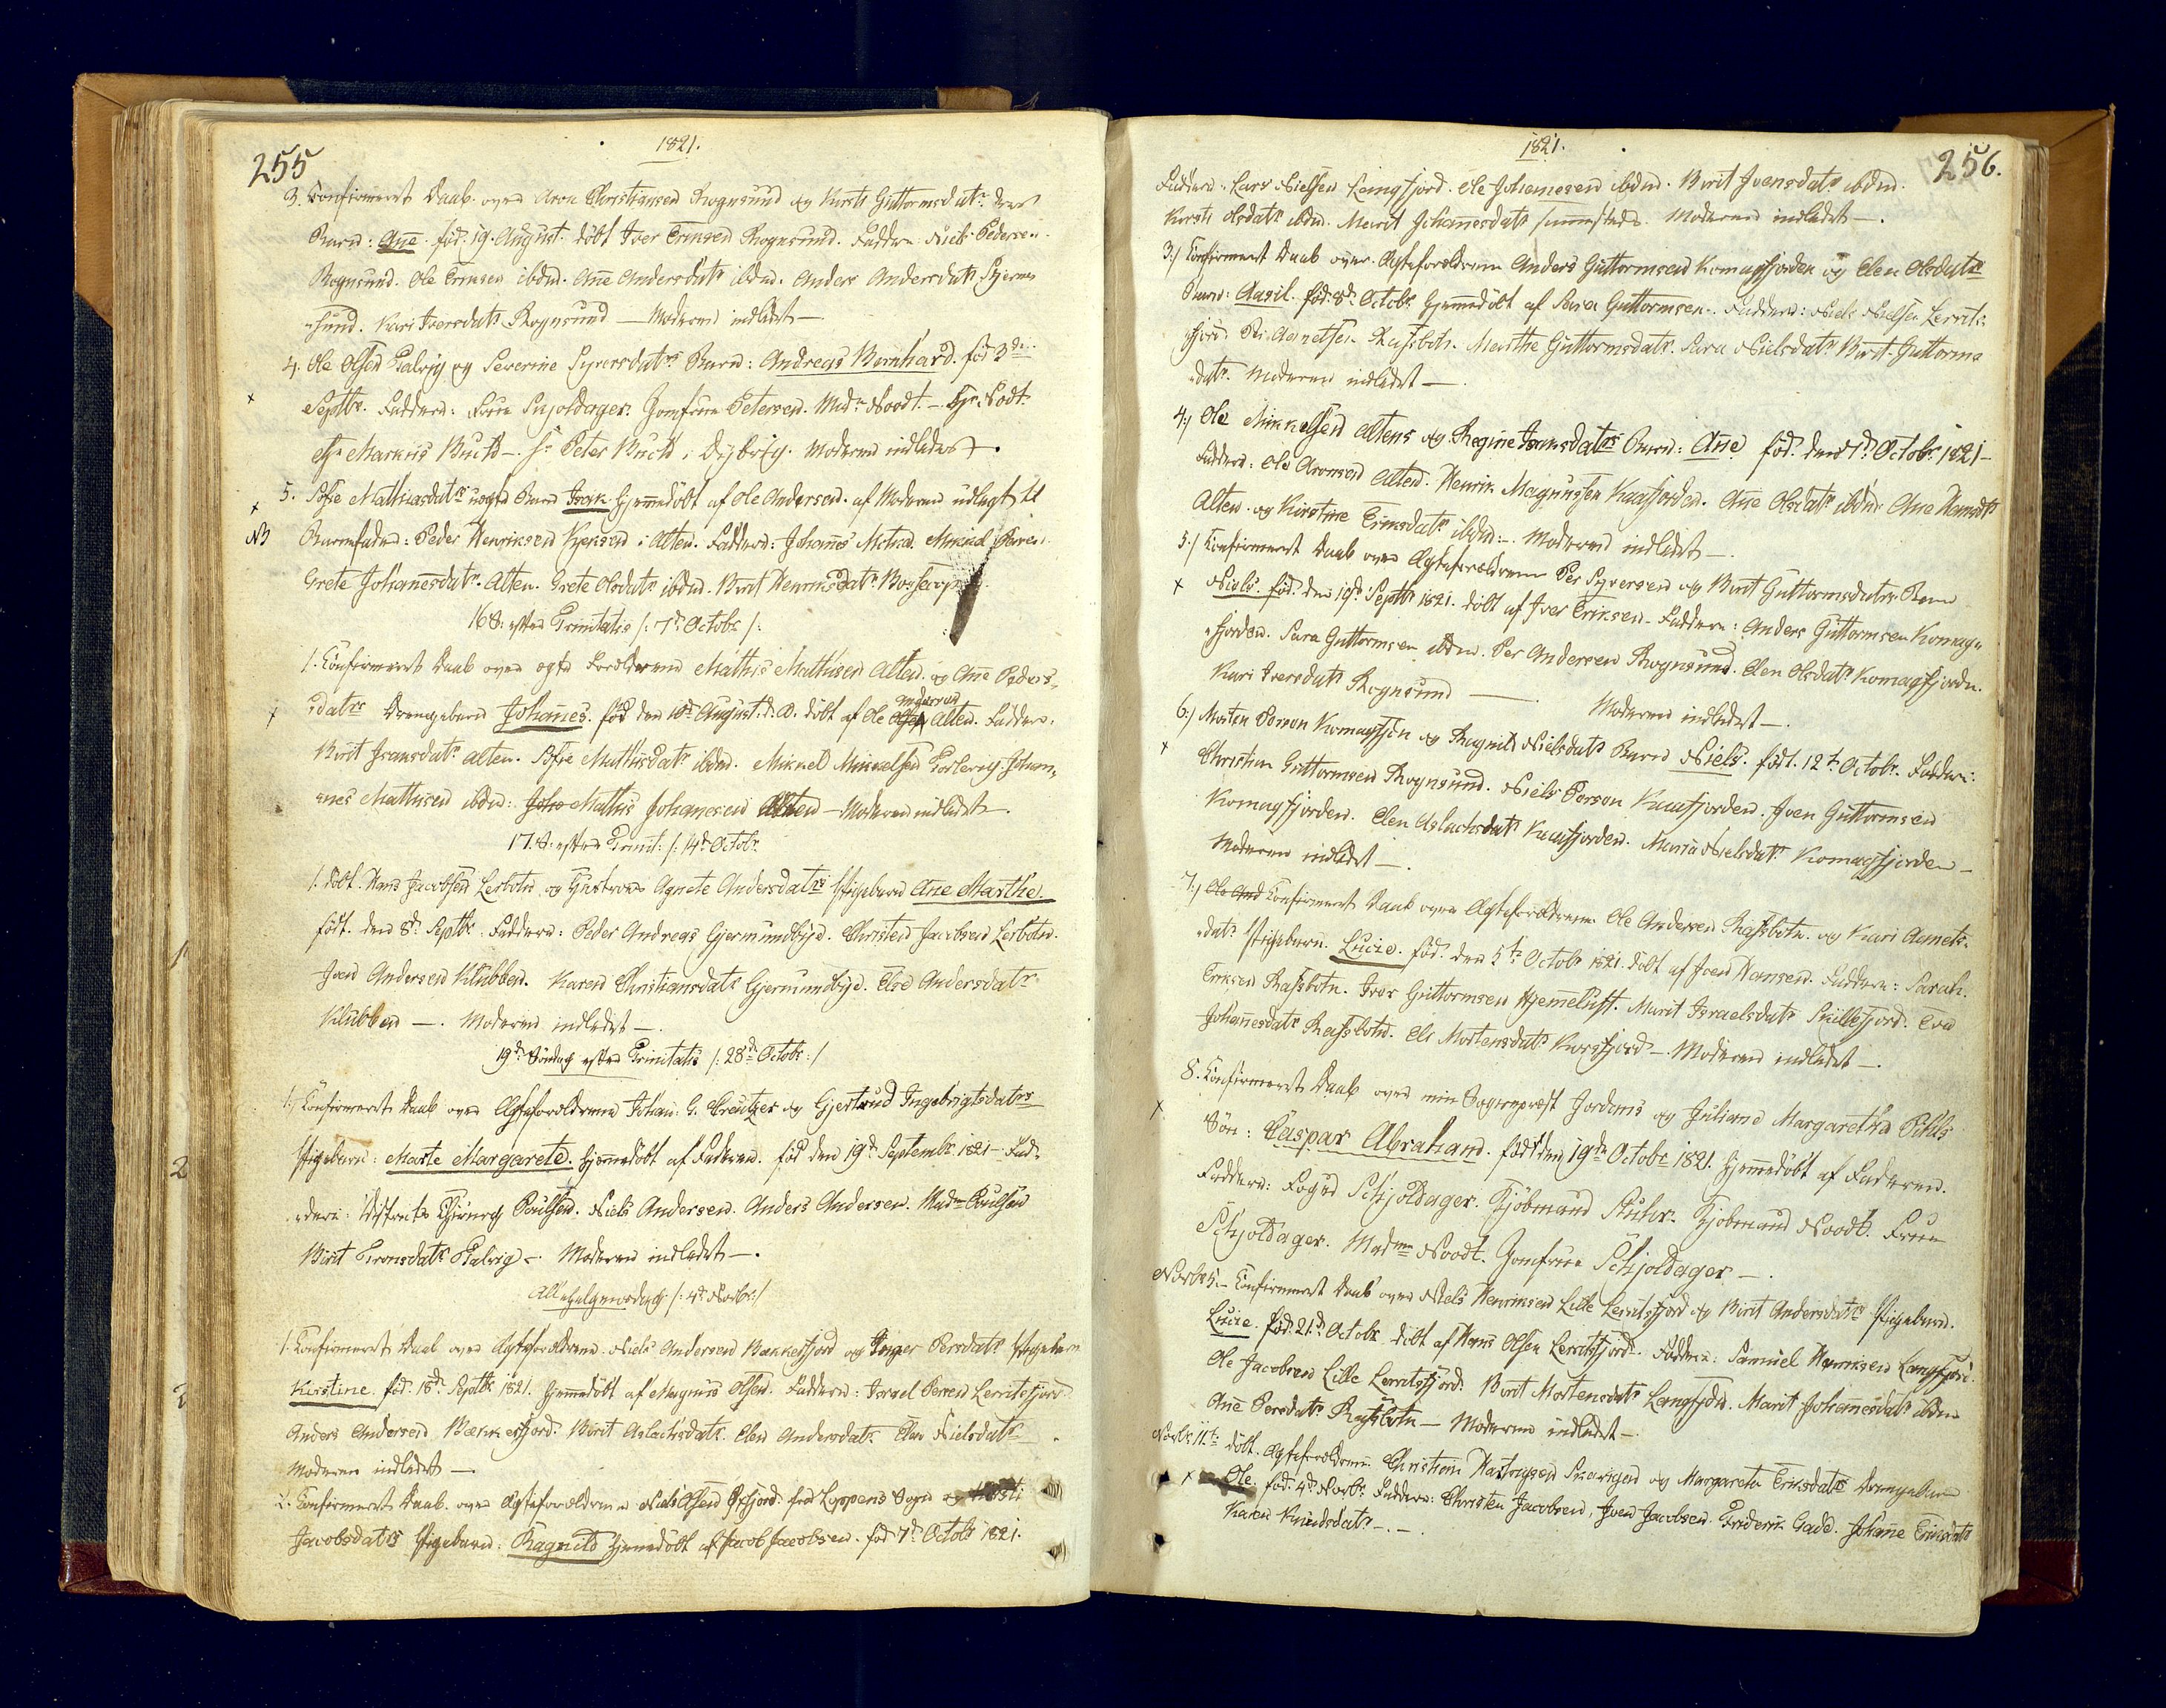 255
1821.
3. Confirmeret Daab over Aron Christiansen Rognsund og Kirsti Guttormsdatr. deres
Barn: Ane. fød. 19. August. döbt Iver Ericsen Rognsund. Faddere Niels Pedersen
Rognsund. Ole Ericsen ibdm. Ane Andersdatr ibdm. Anders Andersdatr Stjern-
sund. Kari Iversdatr Rognsund — Moderen indledet —
4. Ole Olsen Talvig og Severine Syversdatrs Barn: Andreas Bernhard. fød 3de
Septbr. Faddere: Frue Skjoldager. Jomfrue Petersen. Mdm Noodt. — Hr. Nodt.
Hr Markus Buck —. Hr Peter Buck i Dybvig. Moderen indledet.
5. Sofie Mathiasdatrs uægte Barn Isak hjemmedöbt af Ole Andersen. af Moderen udlagt til
NB
Barnefader: Peder Henriksen Kjensen i Alten. Faddere: Johanes
Grete Johanesdatr. Alten. Grete Olsdatr ibdm. Birit Henricsdatr. Bossecop
16 S: efter Trinitatis /: 7d Octobr /:
1. Confirmeret Daab over ægte Forældrene Mathis Mathisen Alten og Ane Peders-
datrs Drengebarn Johanes. fød den 10d August. d. A. döbt af Ole Andersen Alten. Faddere:
Birit Isaaksdatr Alten. Sofie Mathisdatr ibdm. Mikkel Mikkelsen Johan-
nes Mathisen ibdm: Mathis Johanesen Alten — Moderen indledet —.
17. S: efter Trinit: /: 14d Octobr
1. döbt. Hans Jacobsen Lerbotn og Hustroe Agnete Andersdatrs Pigebarn Ane Marthe
födt. den 8d Septbr. Faddere: Peder Andreas Gjermundbye. Christen Jacobsen Lerbotn.
Joen Andersen Klubben. Karen Christiansdatr Gjermundbye. Else Andersdatr
Klubben —. Moderen indledet —.
19d Söndag efter Trinitatis /: 28de Octobr :/
1:/ Confirmeret Daab over Ægteforældrene Johan: G. Kreutzer og Gjertrud Ingebrigtsdatrs
Pigebarn: Marte Margarete. hjemmedöbt af Faderen. fød den 19d Septembr 1821 — Fad-
dere: Districts Chirurg Poulsen. Niels Andersen. Anders Andersen. Mdm Poulsen
Birit Aronsdatr Talvig —. Moderen indledet —.
Allehelgensdag /: 4d Novbr :/
1. Confirmeret Daab over Ægteforældrene Niels Andersen Bækkerfjord og Inger Persdatrs Pigebarn
Kirstine fød. 18d. Septbr 1821. hjemmedöbt af Magnus Olsen. Faddere: Israel Persen Lerritsfjord
Anders Andersen Bækkerfjord. Birit Aslachsdatr. Elen Andersdatr. Elen Nielsdatr
Moderen indledet —
2. Confirmeret Daab over Ægteforældrene Niels Olsen Öxfjord fra Loppens Sogn og Kirsti
Jacobsdatrs Pigebarn: Ragnild hjemmedöbt af Jacob Jacobsen. fød 7d Octobr 1821.
1
2
256.
1821.
Faddere: Lars Nielsen Langfjord. Ole Johanesen ibdm. Birit Joensdatr ibdm.
Kirsti Olsdatr ibdm. Marit Johanesdatr sammesteds. Moderen indledet —.
3:/ Confirmeret Daab over Ægteforældrene Anders Guttormsen Komagfjorden og Elen Olsdatrs
Barn: Aasil. fød. 8d Octobr. hjemmedöbt af Sara Guttormsen. Faddere: Niels Nielsen Lerrits-
fjord. Per Rafsbotn. Marthe Guttormsdatr. Sara Nielsdatr. Birit Guttorms-
datr. Moderen indledet —
4:/ Ole Mikkelsen Altens og Regine Isaksdatrs Barn: Ane fød. den 1d Octobr 1821 —
Faddere: Ole Aronsen Alten. Henrik Magnussen Kaafjorden. Ane Olsdatr ibdm. Ane Hansdtr
Alten. og Kirstine Ericsdatr ibdm:—. Moderen indledet —.
5:/ Confirmeret Daab over Ægteforældrene Per Syversen og Birit Guttormsdatrs Barn
Niels. fød. den 19d Septbr 1821. döbt af Iver Ericsen. Faddere: Anders Guttormsen Komag-
fjorden. Sara Guttormsen ibdm. Per Andersen Rognsund. Elen Olsdatr Komagfjorden.
Kari Iversdatr Rognsund — Moderen indledet —.
6:/ Morten Person Komagfjorden og Ragnild Nielsdatrs Barn Niels. född. 12t Octobr. Faddere:
Christian Guttormsen Rognsund. Niels Person Kaafjorden. Joen Guttormsen
Komagfjorden. Elen Aslachsdatr Kaafjorden. Maria Nielsdatr Komagfjorden —
Moderen indledet —.
7:/ Confirmeret Daab over Ægteforældrene Ole Andersen Rafsbotn. og Kari Agnets-
datr Pigebarn. Lucie. fød. den 5te Octobr 1821. döbt af Joen Hansen. Faddere: Sarah.
Ericsen Rafsbotn. Iver Guttormsen Hjemmeluft. Marit Israelsdatr Skillefjord. Eva
Johanesdatr Rafsbotn. Els Mortensdatr Korsfjord —. Moderen indledet —.
8. Confirmeret Daab over min Sognepræst Jordans og Juliane Margaretha Pihls
Sön: Caspar Abraham. födt den 19de Octobr 1821. hjemmedöbt af Faderen.
Faddere: Foged Schjoldager. Kjöbmand Stuhr. Kjöbmand Noodt. Frue
Schjoldager. Madme Noodt. Jomfrue Schjoldager —.
Novbr 5. — Confirmeret Daab over Niels Henriksen Lille Lerritsfjord og Birit Andersdatrs Pigebarn.
Lucie. fød. 21d Octobr. döbt af Hans Olsen Lerritsfjord. Faddere: Samuel Henriksen Langfjord.
Ole Jacobsen Lille Lerritsfjord. Birit Mortensdatr Langfjord. Marit Johanesdatr ibdm
Ane Persdatr Rafsbotn — Moderen indledet —.
Novbr 11te döbt. Ægteforældrene Christian Skavigen og Margareta Ericsdatrs Drengebarn
Ole fød. 4d Novbr. Faddere: Christen Jacobsen, Joen Jacobsen. Friderik Gade. Johanne Ericsdatr
Karen Knudsdatr —. —.